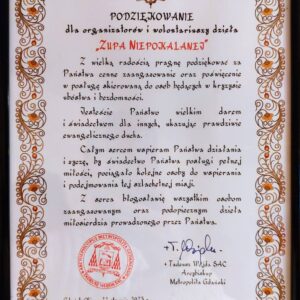 PODZIĘKOWANIE
dla organizatorów i wolontariuszy dzieła
„ZUPA NIEPOKALANEJ”
Z wielką radością pragnę podziękować za
Państwa cenne zaangażowanie oraz poświęcenie
w posługę skierowaną do osób będących w kryzysie
ubóstwa i bezdomności.
Jesteście Państwo wielkim darem
i świadectwem dla innych, ukazując prawdziwie
ewangelicznego ducha.
Całym sercem wspieram Państwa działania
i życzę, by świadectwo Państwa posługi pełnej
miłości, pociągało kolejne osoby do wspierania
i podejmowania tej szlachetnej misji.
Z serca błogosławię wszystkim osobom
zaangażowanym oraz podopiecznym dzieła
miłosierdzia prowadzonego przez Państwa.
+ Tadeusz Wojda SAC
Arcybiskup
Metropolita Gdański